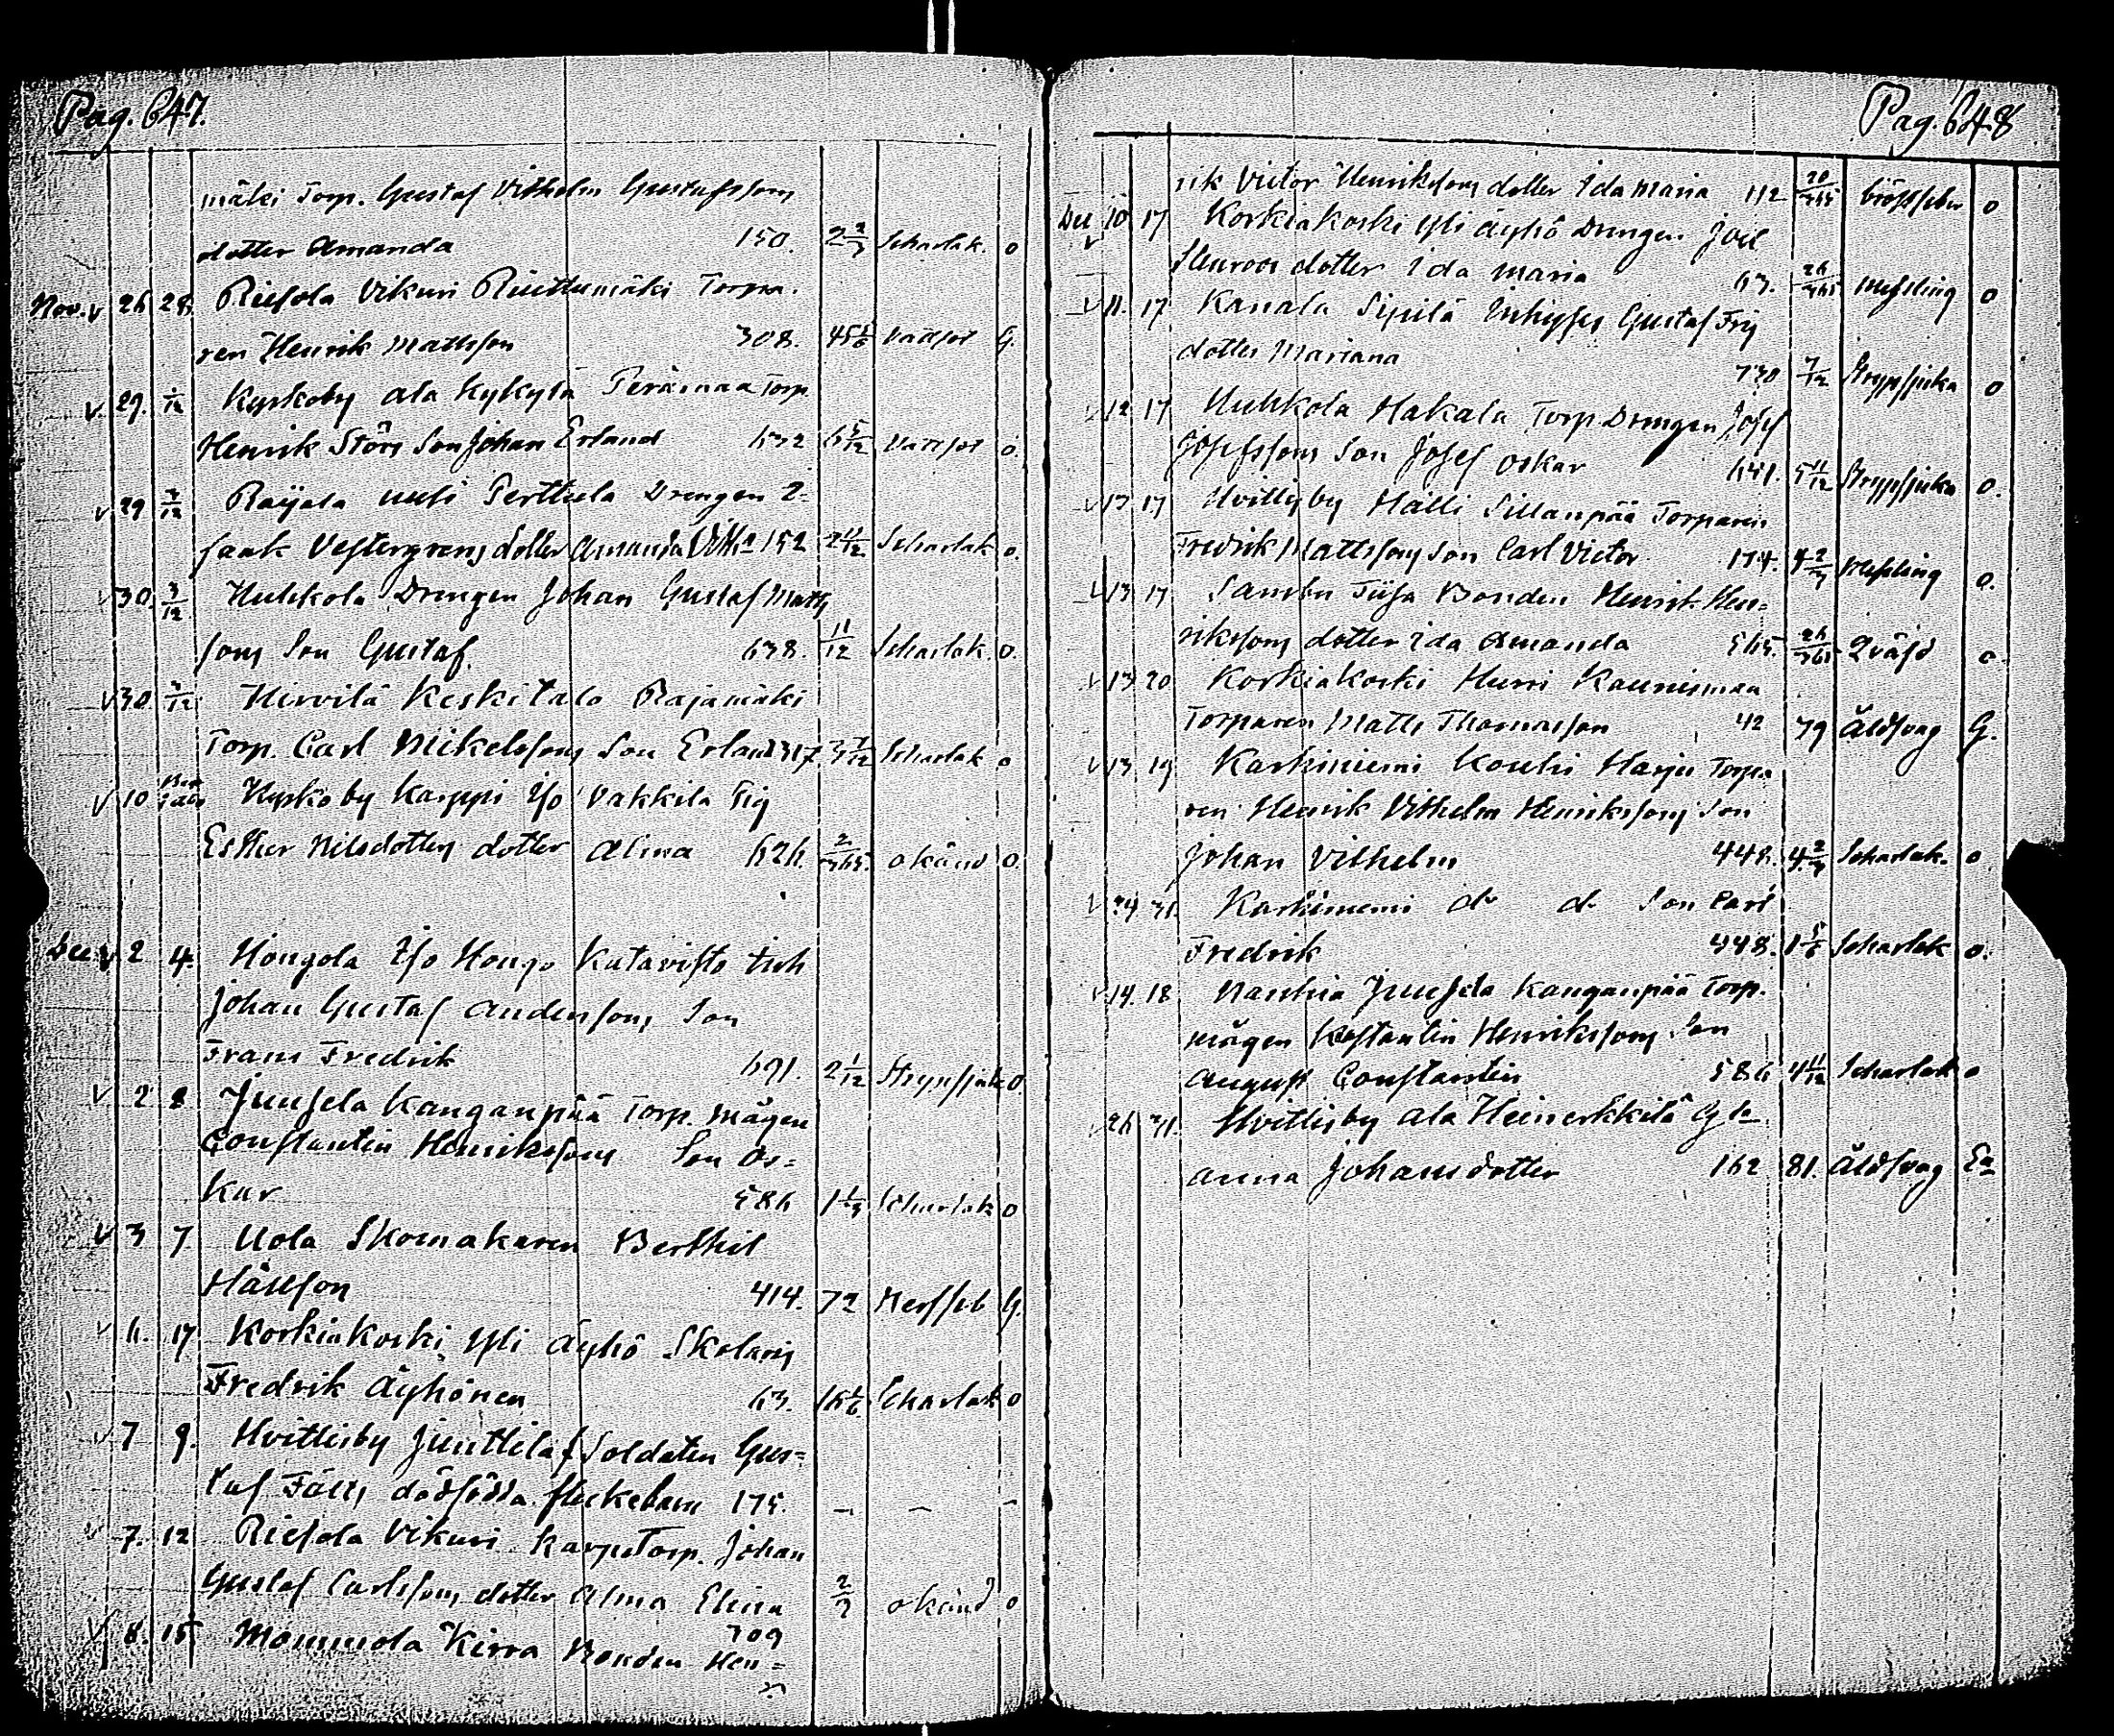 Pag. 647.
mäki Torp. Gustaf Vilhelm Gustafssons
dotter Amanda 150. 2 2/3 Scharlak. o
Nov. v 26 28 Riesola Vikuri Torpa-
ren Henrik Mattsson 308. 45 Vattsot G.
v. 29. 1/12 Kyrkoby ala Kykylä Perämaa Torp.
Henrik Störs Son Johan Erland 632 6 5/12 Vattsot o.
v 29 3/12 Raijala uusi Perttula Drengen I-
saak Vestergrens dotter Amanda Vilh:a 152 2 11/12 Scharlak o.
v 30. 3/12 Huhkola Drengen Johan Gustaf Matts
sons Son Gustaf. 638. 11/12 Scharlak. o.
v 30. 3/12 Hirvilä Keskitalo Rajamäki
Torp. Carl Mikelssons Son Erland 317 3 7/12 Scharlak o
v 10 Kyrkoby Karppi Iso Vakkila Pig
Esther Nilsdotters dotter Alma 626. 2/365. okänd o.
Dec. v 2 4. Hongola Iso Hongo Katavisto
Johan Gustaf Anderssons Son
Frans Fredrik 691. 2 1/12 Strypsjuk o.
v 2 8 Juusela Kanganpää Torp. mågen
Constantin Henrikssons Son Os-
kar 586 1 1/3 Scharlak o
v 3 7 Uola Skomakaren Berthil
Hällson 414. 72 G.
v 6. 17 Korkiakoski Yli Äyhö Skolarn
Fredrik Äyhönen 63. 16 1/6 Scharlak o
v 7 9. Hvittisby Junttila f Soldaten Gus-
taf Fälts dödfödda flickebarn 175. – – –
v 7. 12 Riesola Vikuri Karpe Torp. Johan
Gustaf Carlssons dotter Alma Elina 2/3 okänd o
v 8. 15 Mommola Kirra Bonden Hen- 709
Pag. 648
rik Victor Henrikssons dotter Ida Maria 112 20/365 bröstfeber o
Dec v 10 17 Korkiakoski Yli äyhö Drengen Joel
Stenroos dotter Ida Maria 63. 26/365 messling o
v 11. 17 Kanala Sipilä Inhyses Gustaf Frij
dotter Mariana 730 7/12 Strypsjuka o
v 12 17 Huhkola Hakala Torp. Drengen Josef
Josefssons Son Josef Oskar 641. 5 11/12 Strypsjuka o.
v 13 17 Hvittisby Hälli Sillanpää Torparen
Fredrik Mattssons Son Carl Victor 174. 4 2/3 Messling o.
v 13 17 Sambu Tiisa Bonden Henrik Hen-
rikssons dotter Ida Amanda 565. 26/365 Qväfd o.
v 13 20 Korkiakoski Hurri Kaunismaa
Torparen Matts Thomasson 42 79 Åldsvag G.
v 13 19 Karhiniemi Kouhi Harju Torpa-
ren Henrik Vilhelm Henrikssons Son
Johan Vilhelm 448. 4 2/3 Scharlak. o
v 24 31. Karhiniemi do do Son Carl
Fredrik 448. 1 5/6 Scharlak o.
v 14. 18 Naukia Juusela Kanganpää Torp.
mågen Konstantin Henrikssons Son
August Constantin 586 4 11/12 Scharlak o
26 31. Hvittisby ala Heinerkkilä G la
Anna Johansdotter 162 81. Åldsvag Ea